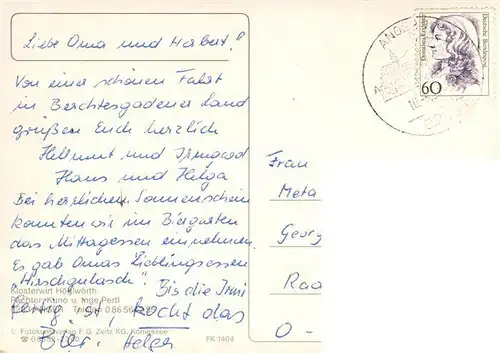 Liebe Oma und Herbert!
Von einer schönen Fahrt
in Berchtesgadener Land
grüßen Euch herzlich
Hellmut und Irmgard
Hans und Helga
Bei herzlichem Sonnenschein
konnten wir im Biergarten
das Mittagessen einnehmen.
Es gab Omas Lieblingsessen
„Hirschgulasch“. Bis die Irmi
fertig ist, kocht das
Helga
Klosterwirt Höglwörth
Pächter Kuno u. Inge Pertl
Telefon
© Fotokunstverlag F. G. Zeitz, KG, Königssee
FK 1404
Deutsche Bundespost
60
Frau
Meta
Georg
Raa
O-